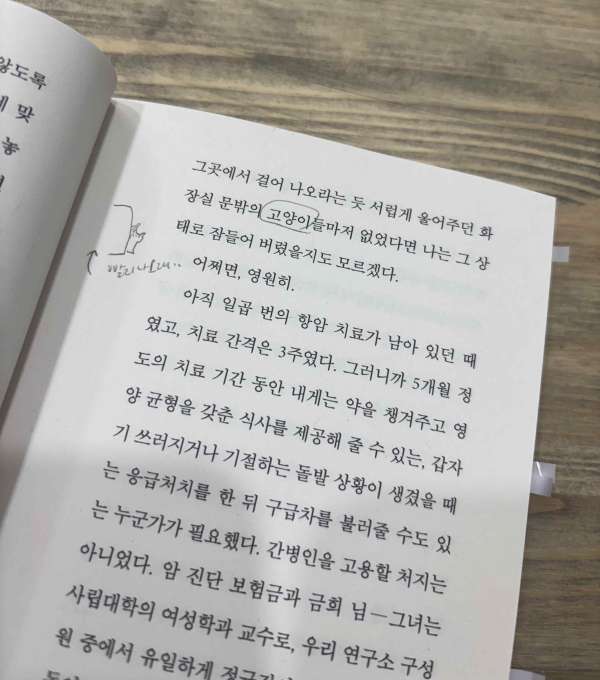 않도록
맞
놓
그곳에서 걸어 나오라는 듯 서럽게 울어주던 화
장실 문밖의 고양이들마저 없었다면 나는 그 상
태로 잠들어 버렸을지도 모르겠다.
빨리 나오래..
어쩌면, 영원히.
아직 일곱 번의 항암 치료가 남아 있던 때
였고, 치료 간격은 3주였다. 그러니까 5개월 정
도의 치료 기간 동안 내게는 약을 챙겨주고 영
양 균형을 갖춘 식사를 제공해 줄 수 있는, 갑자
기 쓰러지거나 기절하는 돌발 상황이 생겼을 때
는 응급처치를 한 뒤 구급차를 불러줄 수도 있
는 누군가가 필요했다. 간병인을 고용할 처지는
아니었다. 암 진단 보험금과 금희 님—그녀는
사립대학의 여성학과 교수로, 우리 연구소 구성
원 중에서 유일하게